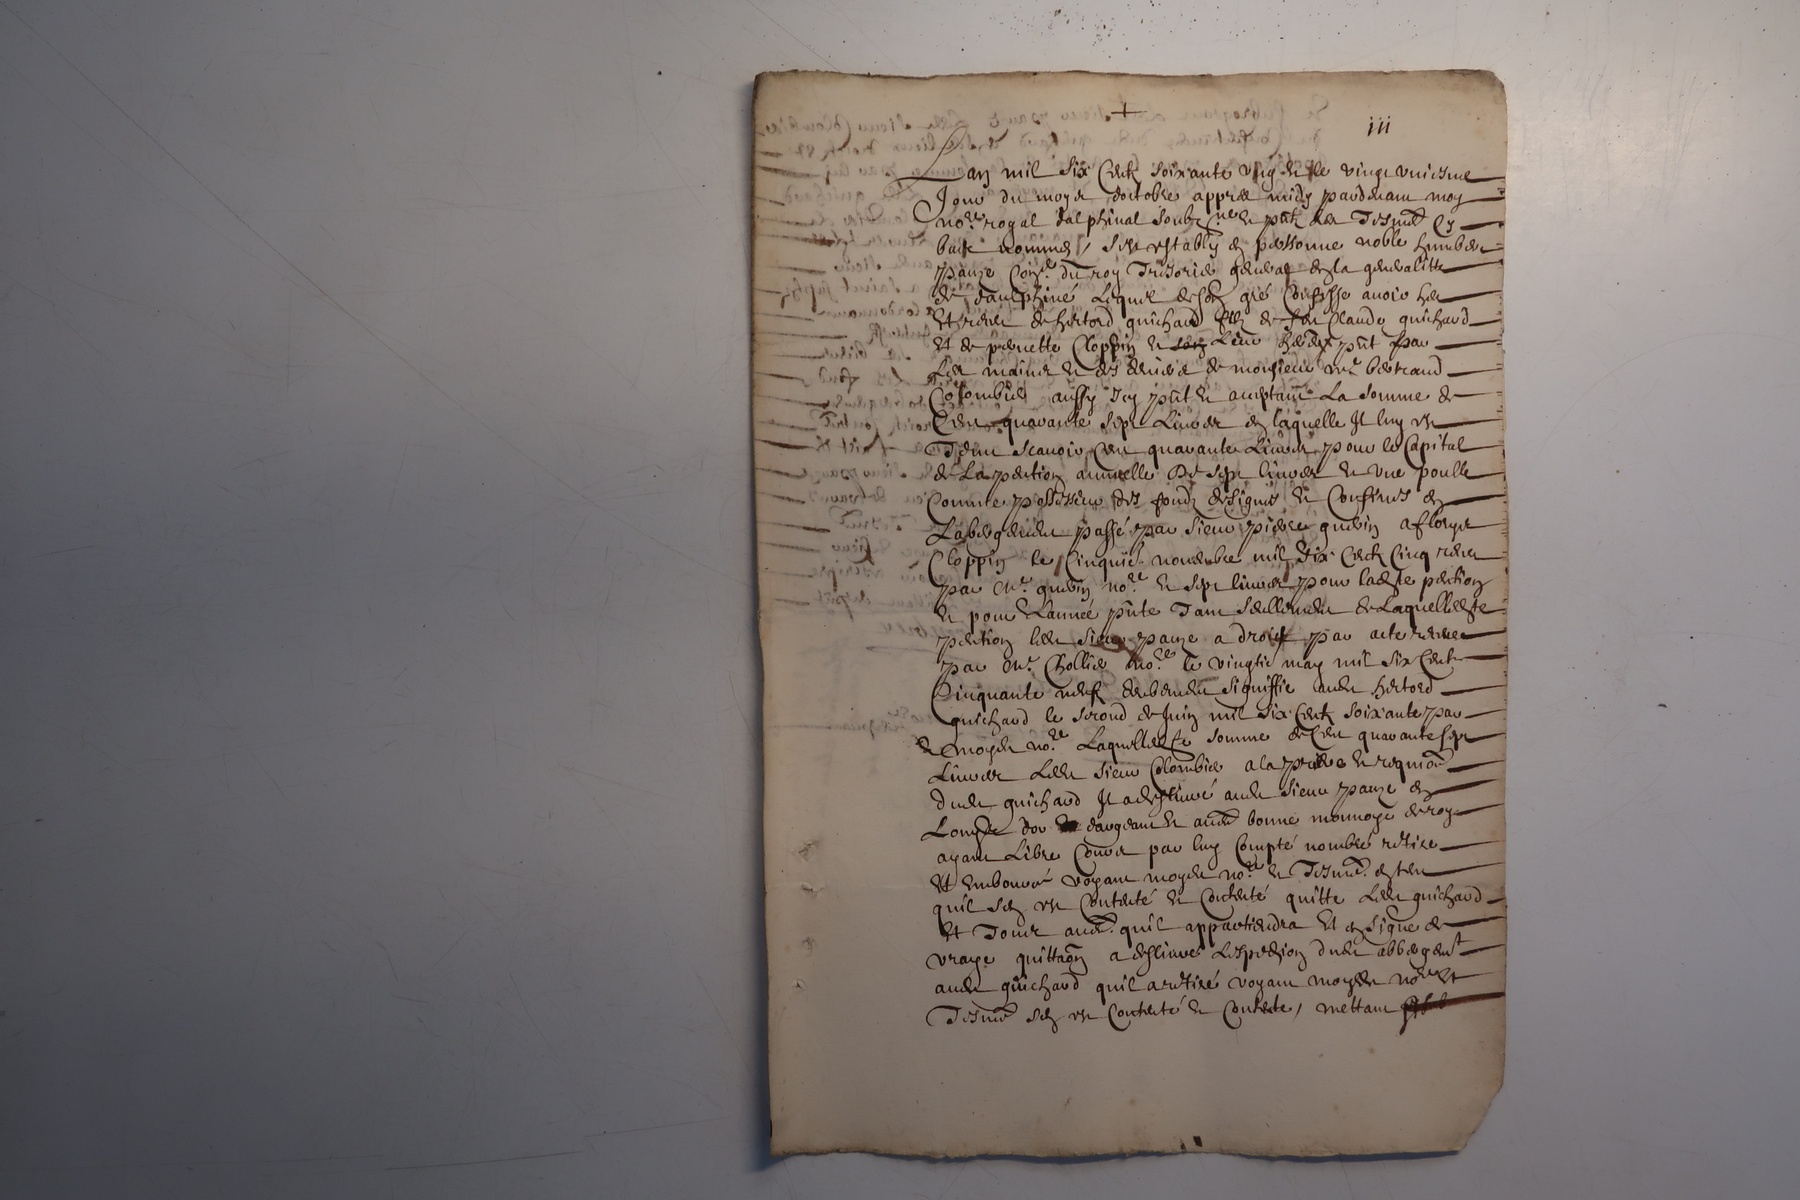 +
iii
Lan mil six Centz soixante ung et le vingt uniesme
Jour du moys doctobre appres midy pardevant moy
no.re royal dalphinal soubz.ne et pnt les Tesmo. Cy
bas nommes / sest estably en personne noble humbert
panze Con.er du roy Trésorier general en la generalitte
de daulphiné Lequel de son gré Confesse avoir heu
Et receu de hector guichard filz de feu Claude guichard
Et de pernette Cloppin pnt par
Les mains et des deniers de monsieur m.e bertrand
Colombier aussy Icy pnt et aceptant La somme de
Cent quarante sept Livres en laquelle Il luy est
Tenu scauoir Cent quarante Livres pour le Capital
de La pention annuelle de sept livres et une poulle
Comme possesseur des fondz designés et Confinés en
Labergement passé par sieur pierre guerin a
Cloppin le Cinquie. novembre mil six Centz Cinq receu
par m.e guerin no.re et sept livres pour ladte pention
et pour Lannée pnte Tant seullement de Laquelle dte
pention ledt sieur panze a droit par acte receu
par m.e Chollier no.re le vingtie may mil six Centz
Cinquante neuf deubement signiffié audt hector
guichard le second de Juin mil six Centz soixante par
moydt no.re Laquelle dte somme de Cent quarante sept
Livres Ledt sieur Colombier a la priere et requion
dudt guichard Il a deslivré audt sieur panze en
Louys dor dargeant et autre bonne monnoye de roy
ayant Libre Cours par luy Compté nombré retiré
Et emboursé voyant moydt no.re et Tesmo.
quil sen est Contenté et Contente quitte Ledt guichard
Et Tous autres quil appartiendra Et en signe de
vraye quittaon a deslivré Lespedion dudt abbergemt
audt guichard quil a retiré voyant moydt no.re Et
Tesmo sen est Contenté et Contente / mettant